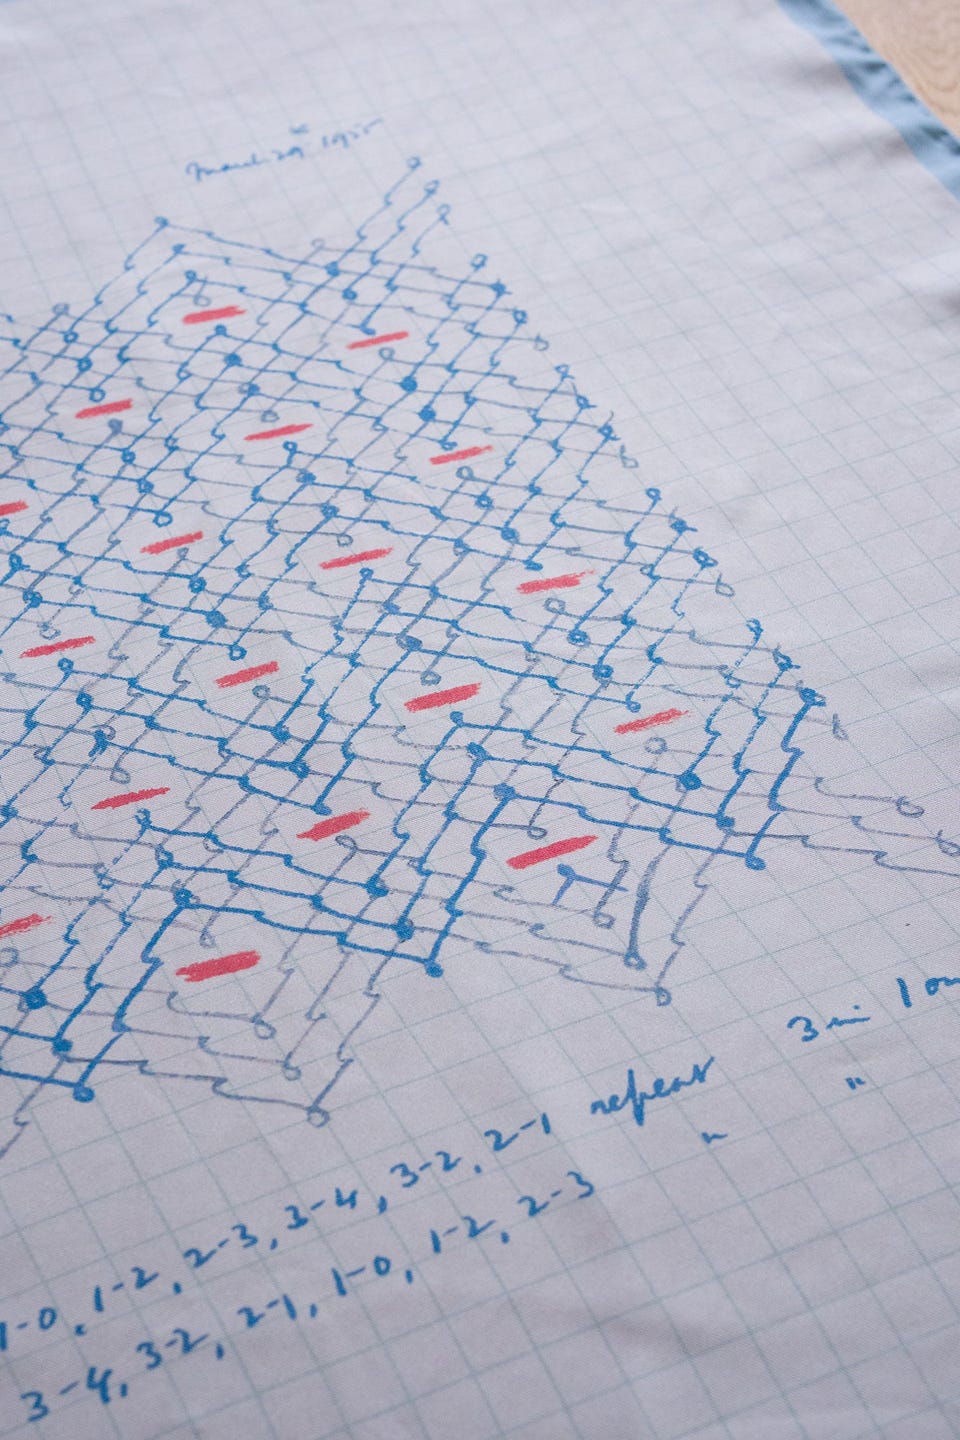 March 29 1955
1-0, 1-2, 2-3, 3-4, 3-2, 2-1 repeat 3 in 1 out
3-4, 3-2, 2-1, 1-0, 1-2, 2-3 " "